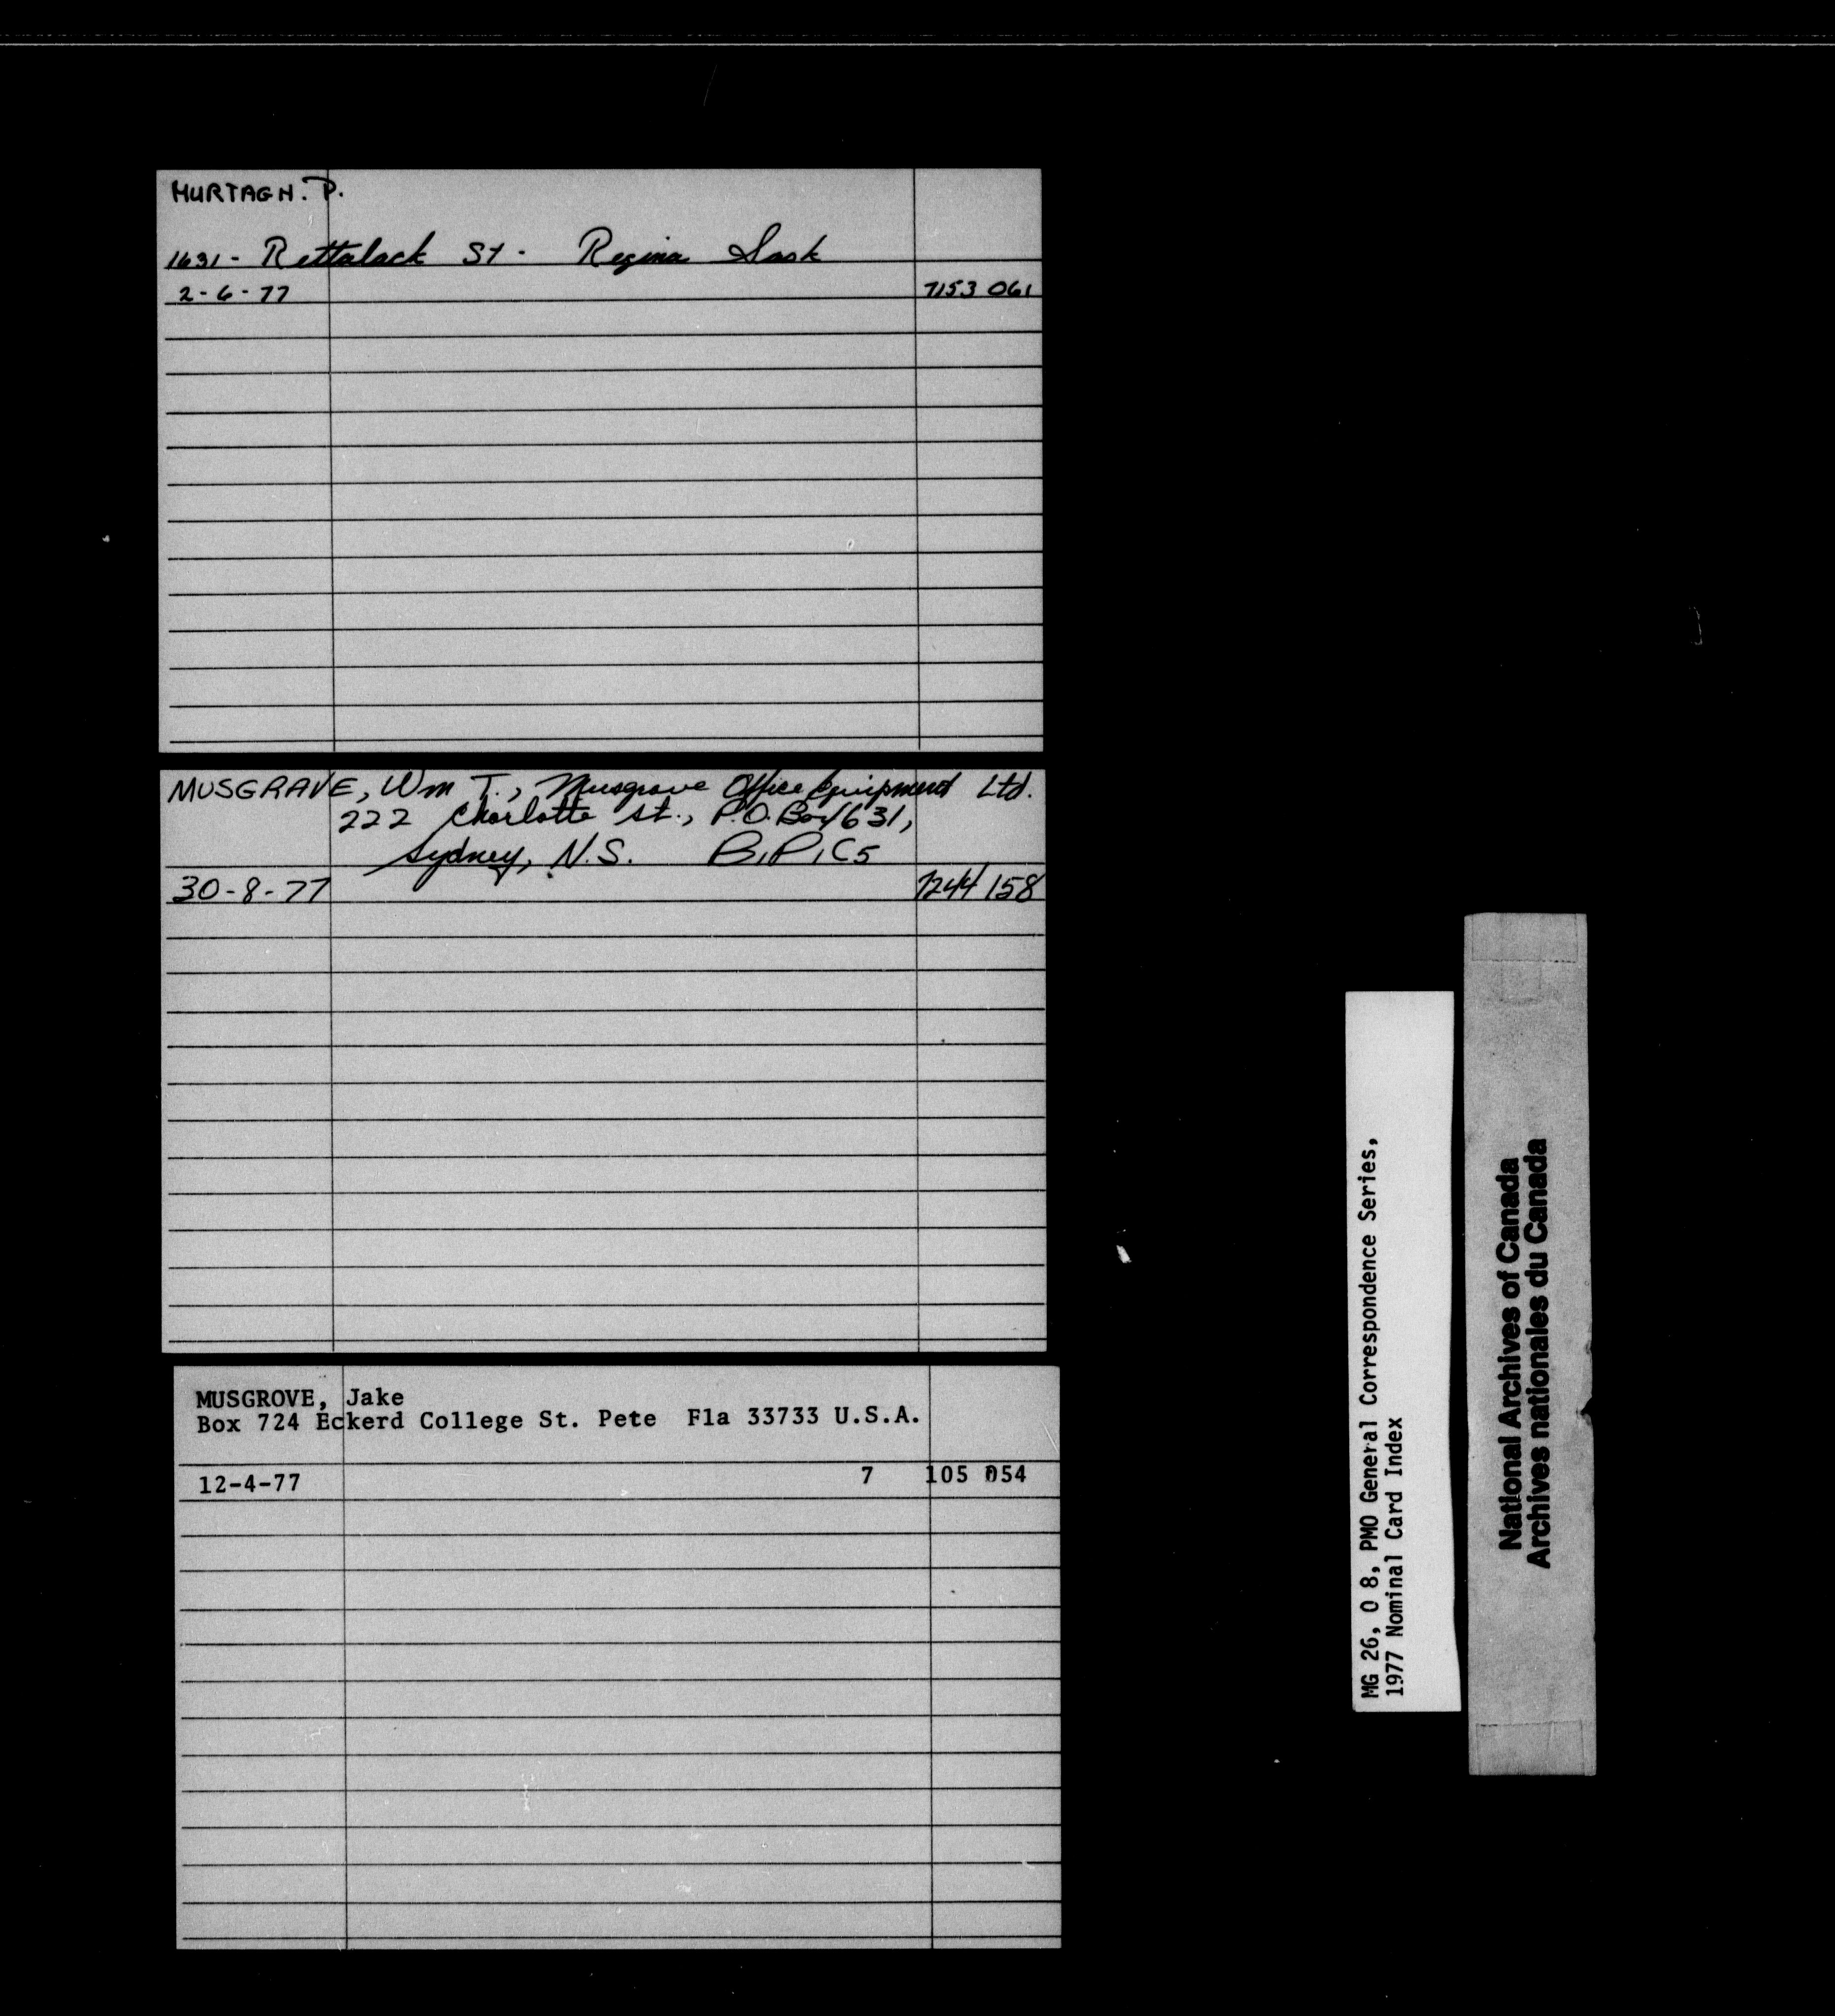 MURTAGH. P.
1631 - Rettalack St - Regina Sask
2-6-77 7153 061
MUSGRAVE, Wm T., Musgrave Office Equipment Ltd.
222 Charlotte St., P.O. Box 631,
Sydney, N.S. B1P1C5
30-8-77 7244 158
MUSGROVE, Jake
Box 724 Eckerd College St. Pete Fla 33733 U.S.A.
12-4-77 7 105 054
MG 26, O 8, PMO General Correspondence Series,
1977 Nominal Card Index
National Archives of Canada
Archives nationales du Canada